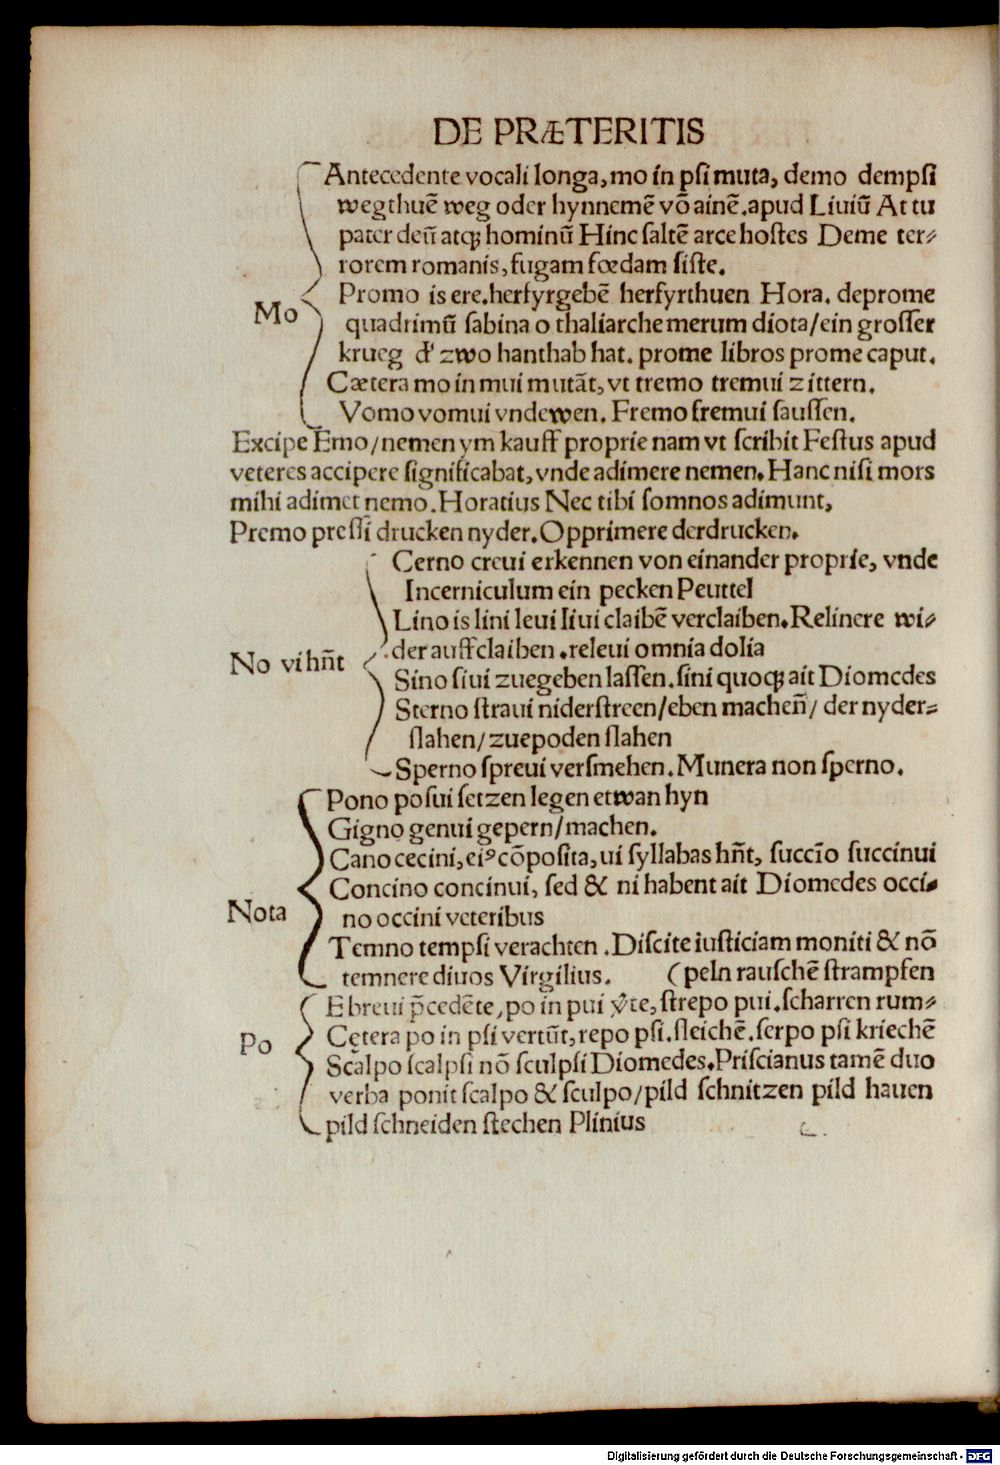 DE PRÆTERITIS
Antecedente vocali longa, mo in psi muta, demo dempsi
wegthuē weg oder hynnemē võ ainē. apud Liuiū At tu
pater deū atqꝫ hominū Hinc saltē arce hostes Deme ter⸗
rorem romanis, fugam fœdam siste.
Promo is ere. herfyrgebē herfyrthuen Hora. deprome
Mo
quadrimū sabina o thaliarche merum diota/ein grosser
krueg d' zwo hanthab hat. prome libros prome caput.
Cætera mo in mui mutāt, vt tremo tremui zittern.
Vomo vomui vndewen. Fremo fremui saussen.
Excipe Emo/nemen ym kauff proprie nam vt scribit Festus apud
veteres accipere significabat, vnde adimere nemen. Hanc nisi mors
mihi adimet nemo. Horatius Nec tibi somnos adimunt,
Premo pressi drucken nyder. Opprimere derdrucken.
Cerno creui erkennen von einander proprie, vnde
Incerniculum ein pecken Peuttel
Lino is lini leui liui claibē verclaiben. Relinere wi⸗
der auffclaiben. releui omnia dolia
No vi hñt
Sino siui zuegeben lassen. sini quoqꝫ ait Diomedes
Sterno straui niderstreen/eben macheñ/ der nyder⸗
slahen/zuepoden slahen
Sperno spreui versmehen. Munera non sperno.
Pono posui setzen legen etwan hyn
Gigno genui gepern/machen.
Cano cecini, eiꝰ cõposita, ui syllabas hñt, succīo succinui
Concino concinui, sed & ni habent ait Diomedes occi⸗
Nota
no occini veteribus
Temno tempsi verachten. Discite iusticiam moniti & nõ
temnere diuos Virgilius. (peln rauschē strampfen
E breui p̄cedēte, po in pui v̓te, strepo pui. scharren rum⸗
Cętera po in psi vertūt, repo psi. sleichē. serpo psi kriechē
Po
Scalpo scalpsi nõ sculpsi Diomedes. Priscianus tamē duo
verba ponit scalpo & sculpo/pild schnitzen pild hauen
pild schneiden stechen Plinius
Digitalisierung gefördert durch die Deutsche Forschungsgemeinschaft - DFG